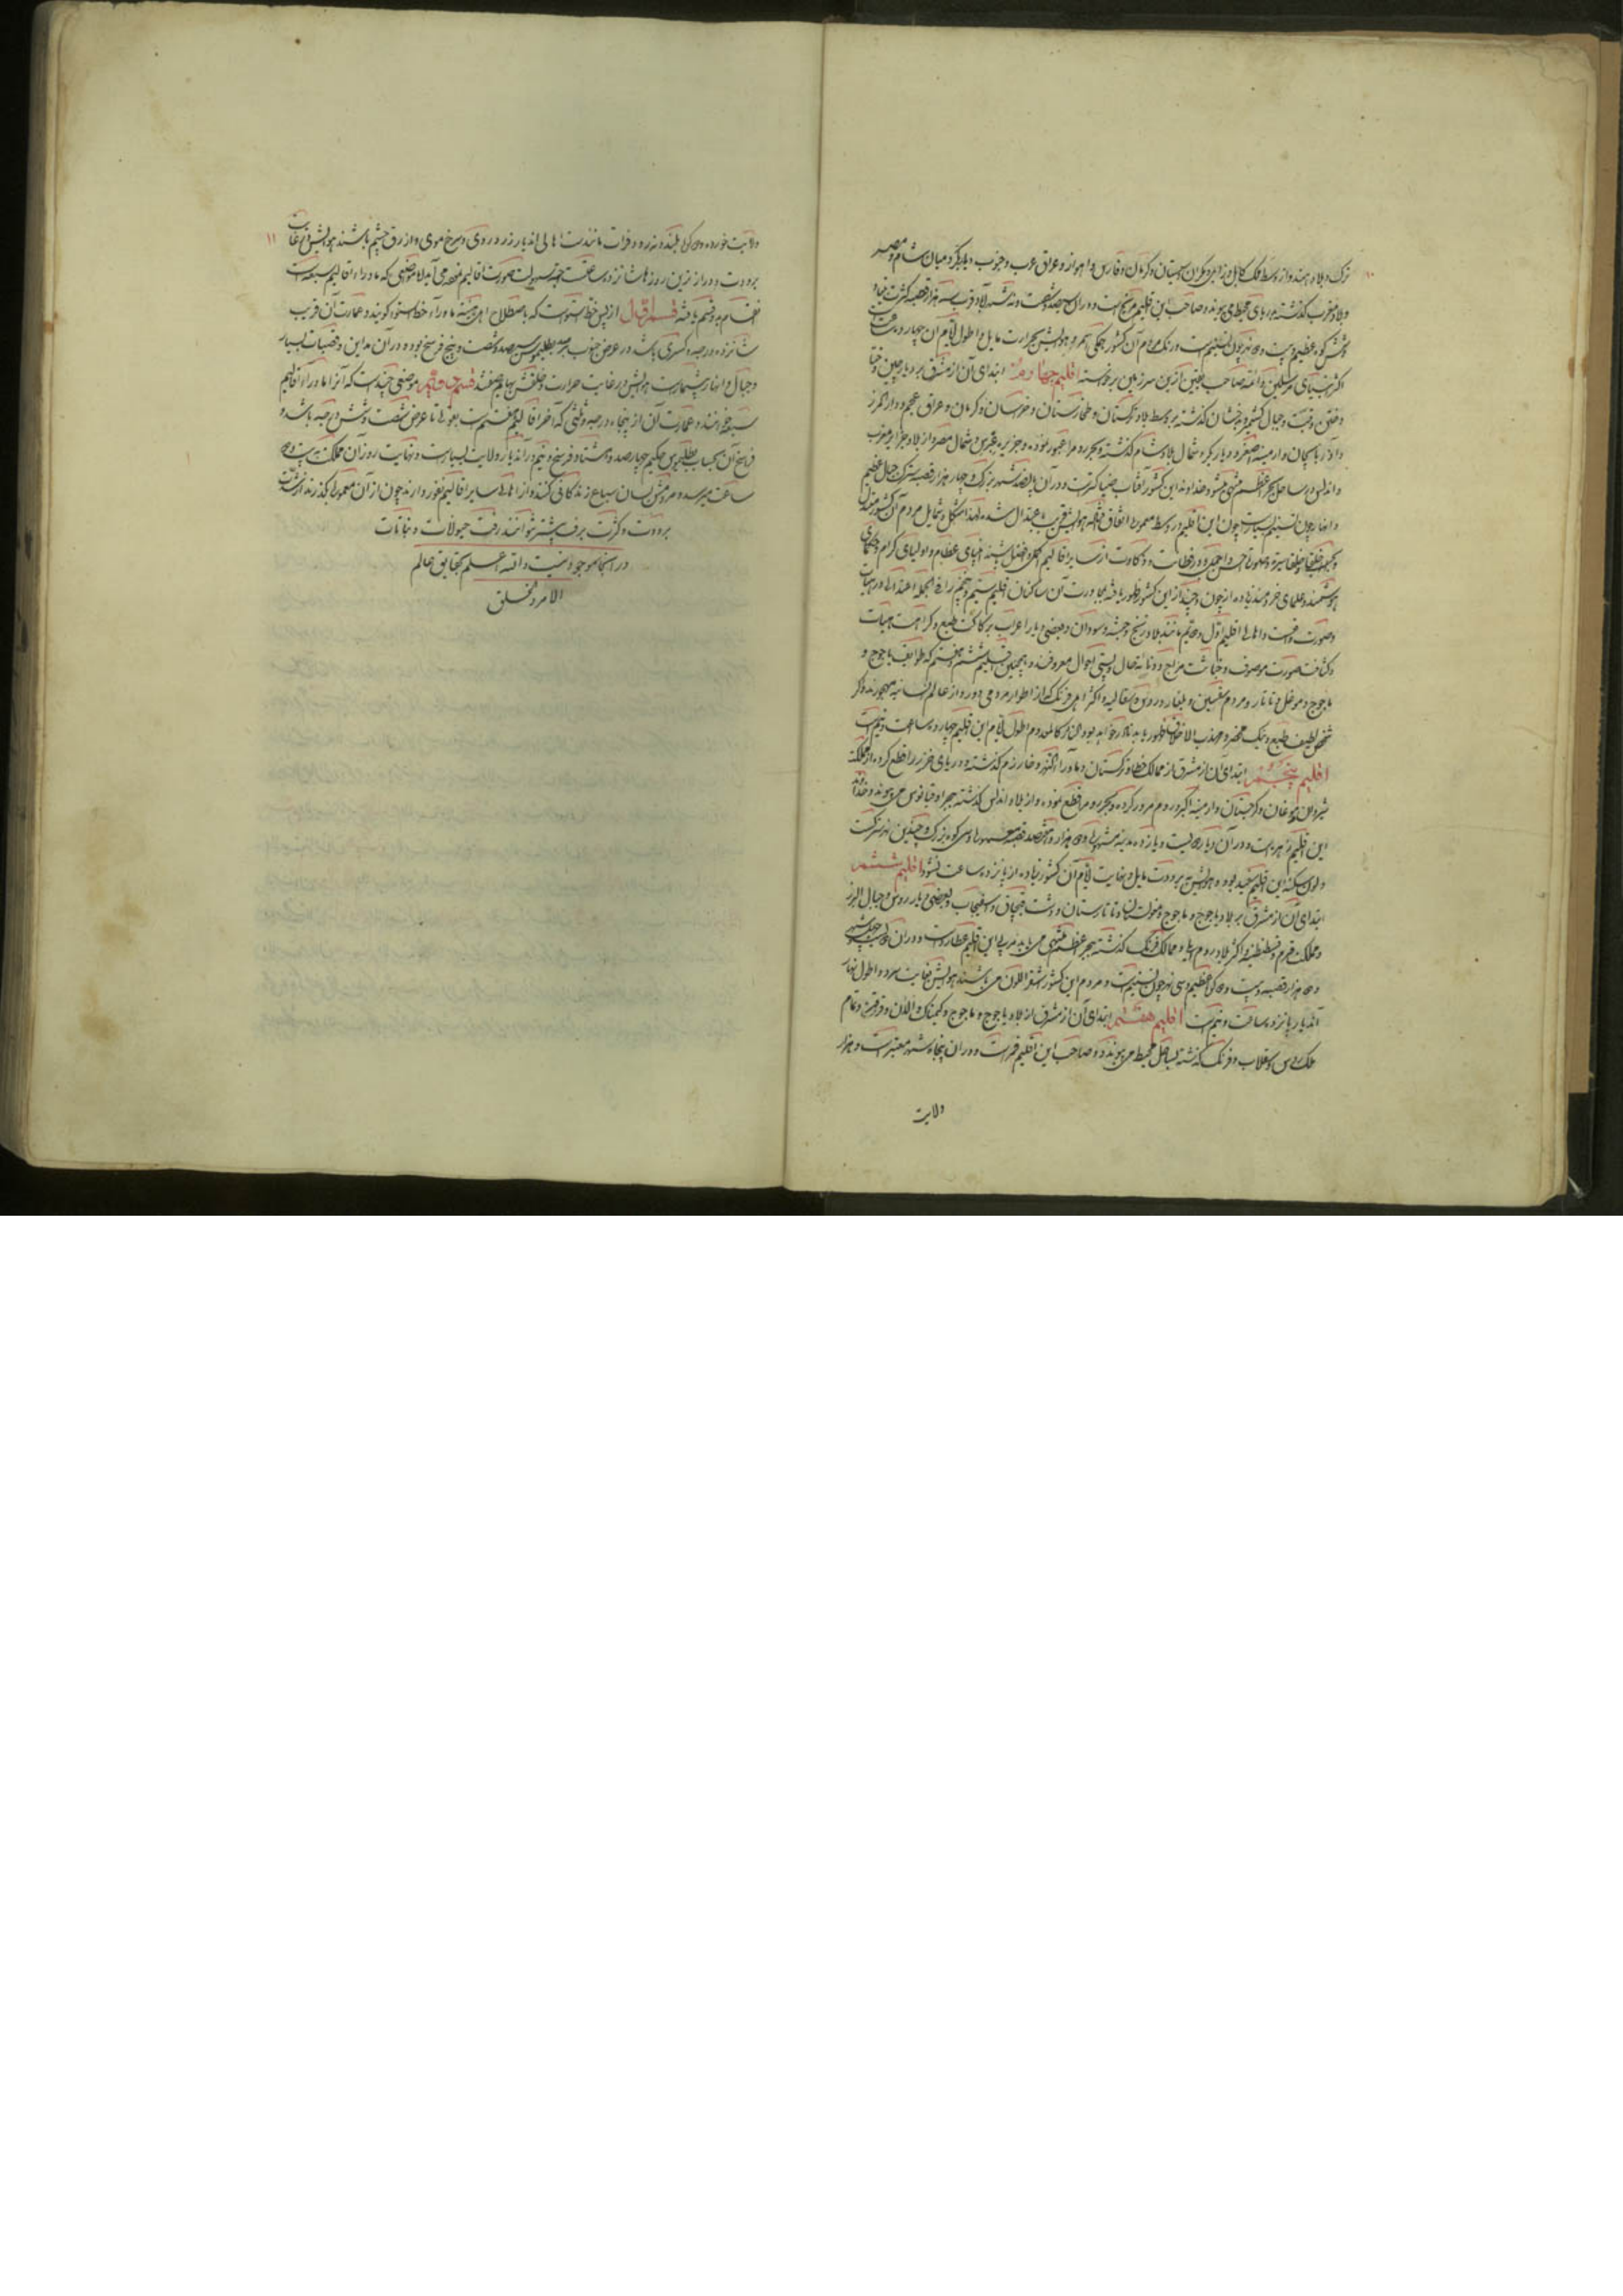 ترک و بلاد هند و از وسط ملک کابل و زابل و مکران و سیستان و کرمان و فارس و اهواز و عراق عرب و جنوب دیاربکر و میان شام و مصر
و بلاد مغرب گذشته بدریای محیط می پیوندد و صاحب این اقلیم مریخ است و در آن سیصد و شصت و نه شهر آباد و قریب سه هزار قصبه
و شش کوه عظیم و بیست و نهر بزرگ است و رنگ مردم آن کشور همگی اسمر و هوایش بحرارت مایل و اطول ایام آن چهارده ساعت
اکثر انبیای مرسلین و ائمه صاحب یقین ازین سرزمین برخواسته اقلیم چهارم ابتدای آن از مشرق بر دیار چین و ختا
و ختن و تبت و جبال کشمیر و بدخشان گذشته بر وسط بلاد ترکستان و طخارستان و خراسان و کرمان و عراق عجم و دارالمرز
و آذربایجان و ارمینه اصغر و دیاربکر و شمال بلاد شام گذشته و بحر روم را عبور نموده و جزیره قبرس و شمال مصر و از بلاد جزایر مغرب
و اندلس بساحل بحر اعظم منتهی میشود خداوند این کشور آفتاب ضیا گستر است و در آن پانصد شهر بزرگ و چهار هزار قصبه
و انهار چون این اقلیم در وسط معموره اتفاق افتاده هوایش قریب باعتدال شده لهذا شکل و شمایل مردم آن کشور
در فطانت و ذکاوت از سایر اقالیم اکمل و افضل باشند انبیای عظام و اولیای کرام و حکمای
هوشمند و علمای خردمند زیاده از چون و چند از این کشور ظهور یافته بمجاورت آن ساکنان اقلیم سیم و پنجم را فی الجمله اعتدالی در هیات
و صورت هست و اهالی اقلیم اول و دویم مانند بلاد زنج و حبشه و سودان و بعضی دیار اعراب برکاکت طبع و کراهت هیات
و کثافت صورت موصوف و خباثت مزاج و دنائت حال و پستی احوال معروفند و همچنین اقلیم ششم و هفتم که طوایف یاجوج و
ماجوج و مغول و تاتار و مردم و بلغار و روس و سقالبه و اکثر اهل فرنگ که از اطوار مردمی دور و از عالم انسانیه مهجورند و اگر
شخص لطیف طبع و نیک محضر و مهذب الاخلاق ظهور یابد نادر خواهد بود و النادر کالمعدوم اطول ایام این اقلیم چهارده ساعت و نیم است
اقلیم پنجم ابتدای آن از مشرق از ممالک خطا و ترکستان و ماوراء النهر و خارزم گذشته و دریای خزر را قطع کرده از مملکت
شروان و موغان و گرجستان و ارمینه اکبر و روم مرور کرده و بحر روم را قطع نموده و از بلاد اندلس گذشته ببحر اوقیانوس می پیوندد و خداوند
این اقلیم زهره است و در آن دیار دویست و یازده مدینه مشهور و ده هزار و هفتصد قصبه معموره و سی کوه بزرگ و چندین نهر سترگ است
و لون سکنه این اقلیم سفید بوده و هوایش ببرودت مایل و نهایت ایام آن کشور زیاده از پانزده ساعت نشود اقلیم ششم
ابتدای آن از مشرق بر بلاد یاجوج و ماجوج و مغولستان و تاتارستان و دشت قبچاق و سقلاب و بعضی دیار روس و جبال البرز
و مملکت قرم و قسطنطنیه و اکثر بلاد روم ایلی و ممالک فرنگ گذشته ببحر اعظم منتهی می یابد مربی این اقلیم عطارد است و در آن
و ده هزار قصبه و بیست و دو کوه عظیم و سی نهر چون تسنیم است و مردم این کشور اشقر اللون می باشند هوایش بغایت سرد و اطول نهار
آندیار پانزده ساعت و نیم است اقلیم هفتم ابتدای آن از مشرق از بلاد یاجوج و ماجوج و کیماک و الان و قرقیز و تمام
ملک روس و سقلاب و فرنگ گذشته بساحل محیط می پیوندد و صاحب این اقلیم قمر است و در آن پنجاه شهر معتبر است و هزار
ولایت
۱۰
۱۱
ولایت خورد و ده کوه بلند و نه رود فرات مانند است اهالی آندیار زرد روی و سرخ موی و ازرق چشم باشند هوایش در غایت
برودت و درازترین روزهاش شانزده ساعت جهت سهولت صورت اقالیم بنظر می آید لا مواضعی که ماوراء اقالیم سبعه است
انقسام بدو قسم یافته قسم اول از پس خط استوا است که باصطلاح اهل هیئه ماوراء خط استوا گویند و عمارت آن قریب
شانزده درجه و کسری باشد در عرض جنوب برصد بطلیموس سیصد و شصت و پنج فرسخ بوده در آن مداین و قصبات بسیار
و جبال و انهار بیشمار است هوایش در غایت حرارت و خلقش بهایم صفتند قسم دویم موضعی چند است که آنرا ماوراء اقالیم
سبعه خوانند و عمارت آن از پنجاه درجه و ثلثی که آخر اقالیم هفتم است بعوض تا عرض شصت و شش درجه باشد و
فراسخ آن بحساب بطلیموس حکیم چهارصد و هشتاد فرسخ و نیم در آندیار ولایت بسیار است و نهایت روز آن مملکت به بیست و سه
ساعت میرسد و مردمش بسان سباع زندگانی کنند و از اهالی سایر اقالیم نفور دارند چون از آن معموره گذرند از شدت
برودت و کثرت برف پیشتر نتوانند رفت حیوانات و نباتات
در آنجا موجود نیست والله اعلم بحقایق عالم
الامر و الخلق